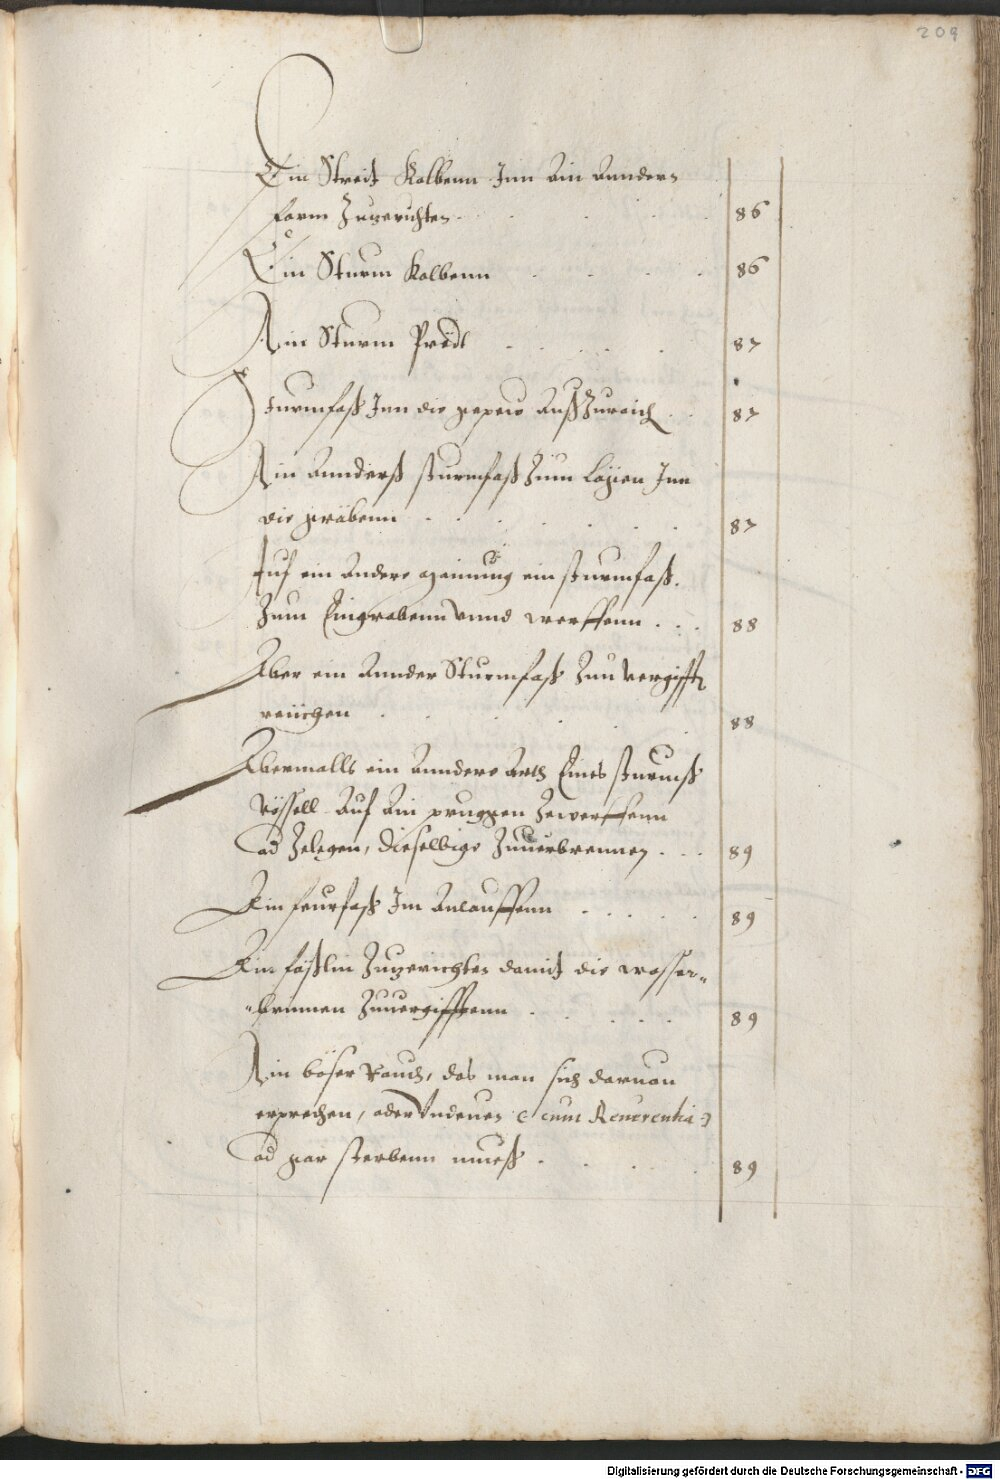 209
Ein Streit Kolbenn Inn Ain Annders
form Zuzerichten 86
Ein Sturm Kolbenn 86
Ain Sturm Prödt 87
Sturmfaß Inn die gegenw Auß Zuraich 87
Ain Annderß sturmfaß Zum Legen Inn
die gräbenn 87
Auf ein Andere Mainung ein sturmfaß
Zum Eingrabenn vnnd werffenn 88
Aber ein Annder Sturmfaß Zuu vergifft
reüchen 88
Abermalls ein Anndere Arth Eines sturmß
vässell Auf Ain pruggen Zewerffenn
od Zelegen, dieselbige Zuuerbrennen 89
Ein feurfaß Im Anlauffenn 89
Ein fäßlin Zuzerichten damit die wasser-
-brunnen Zuuergifftenn 89
Ain böser Rauch, das man sich daruon
erprechen, oder Vndeuen (: cum Reuerentia :)
od gar sterbenn mueß 89
Digitalisierung gefördert durch die Deutsche Forschungsgemeinschaft - DFG